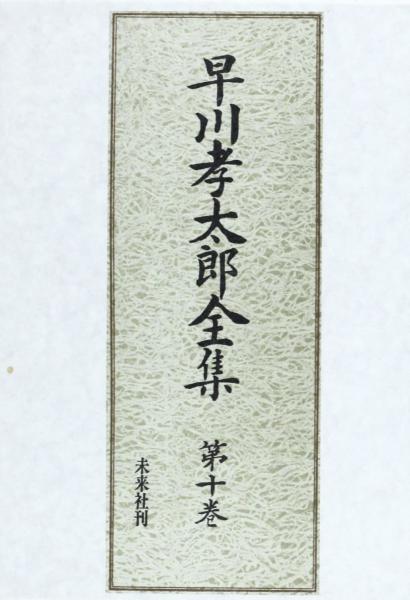 早川孝太郎全集 第十巻
未来社刊